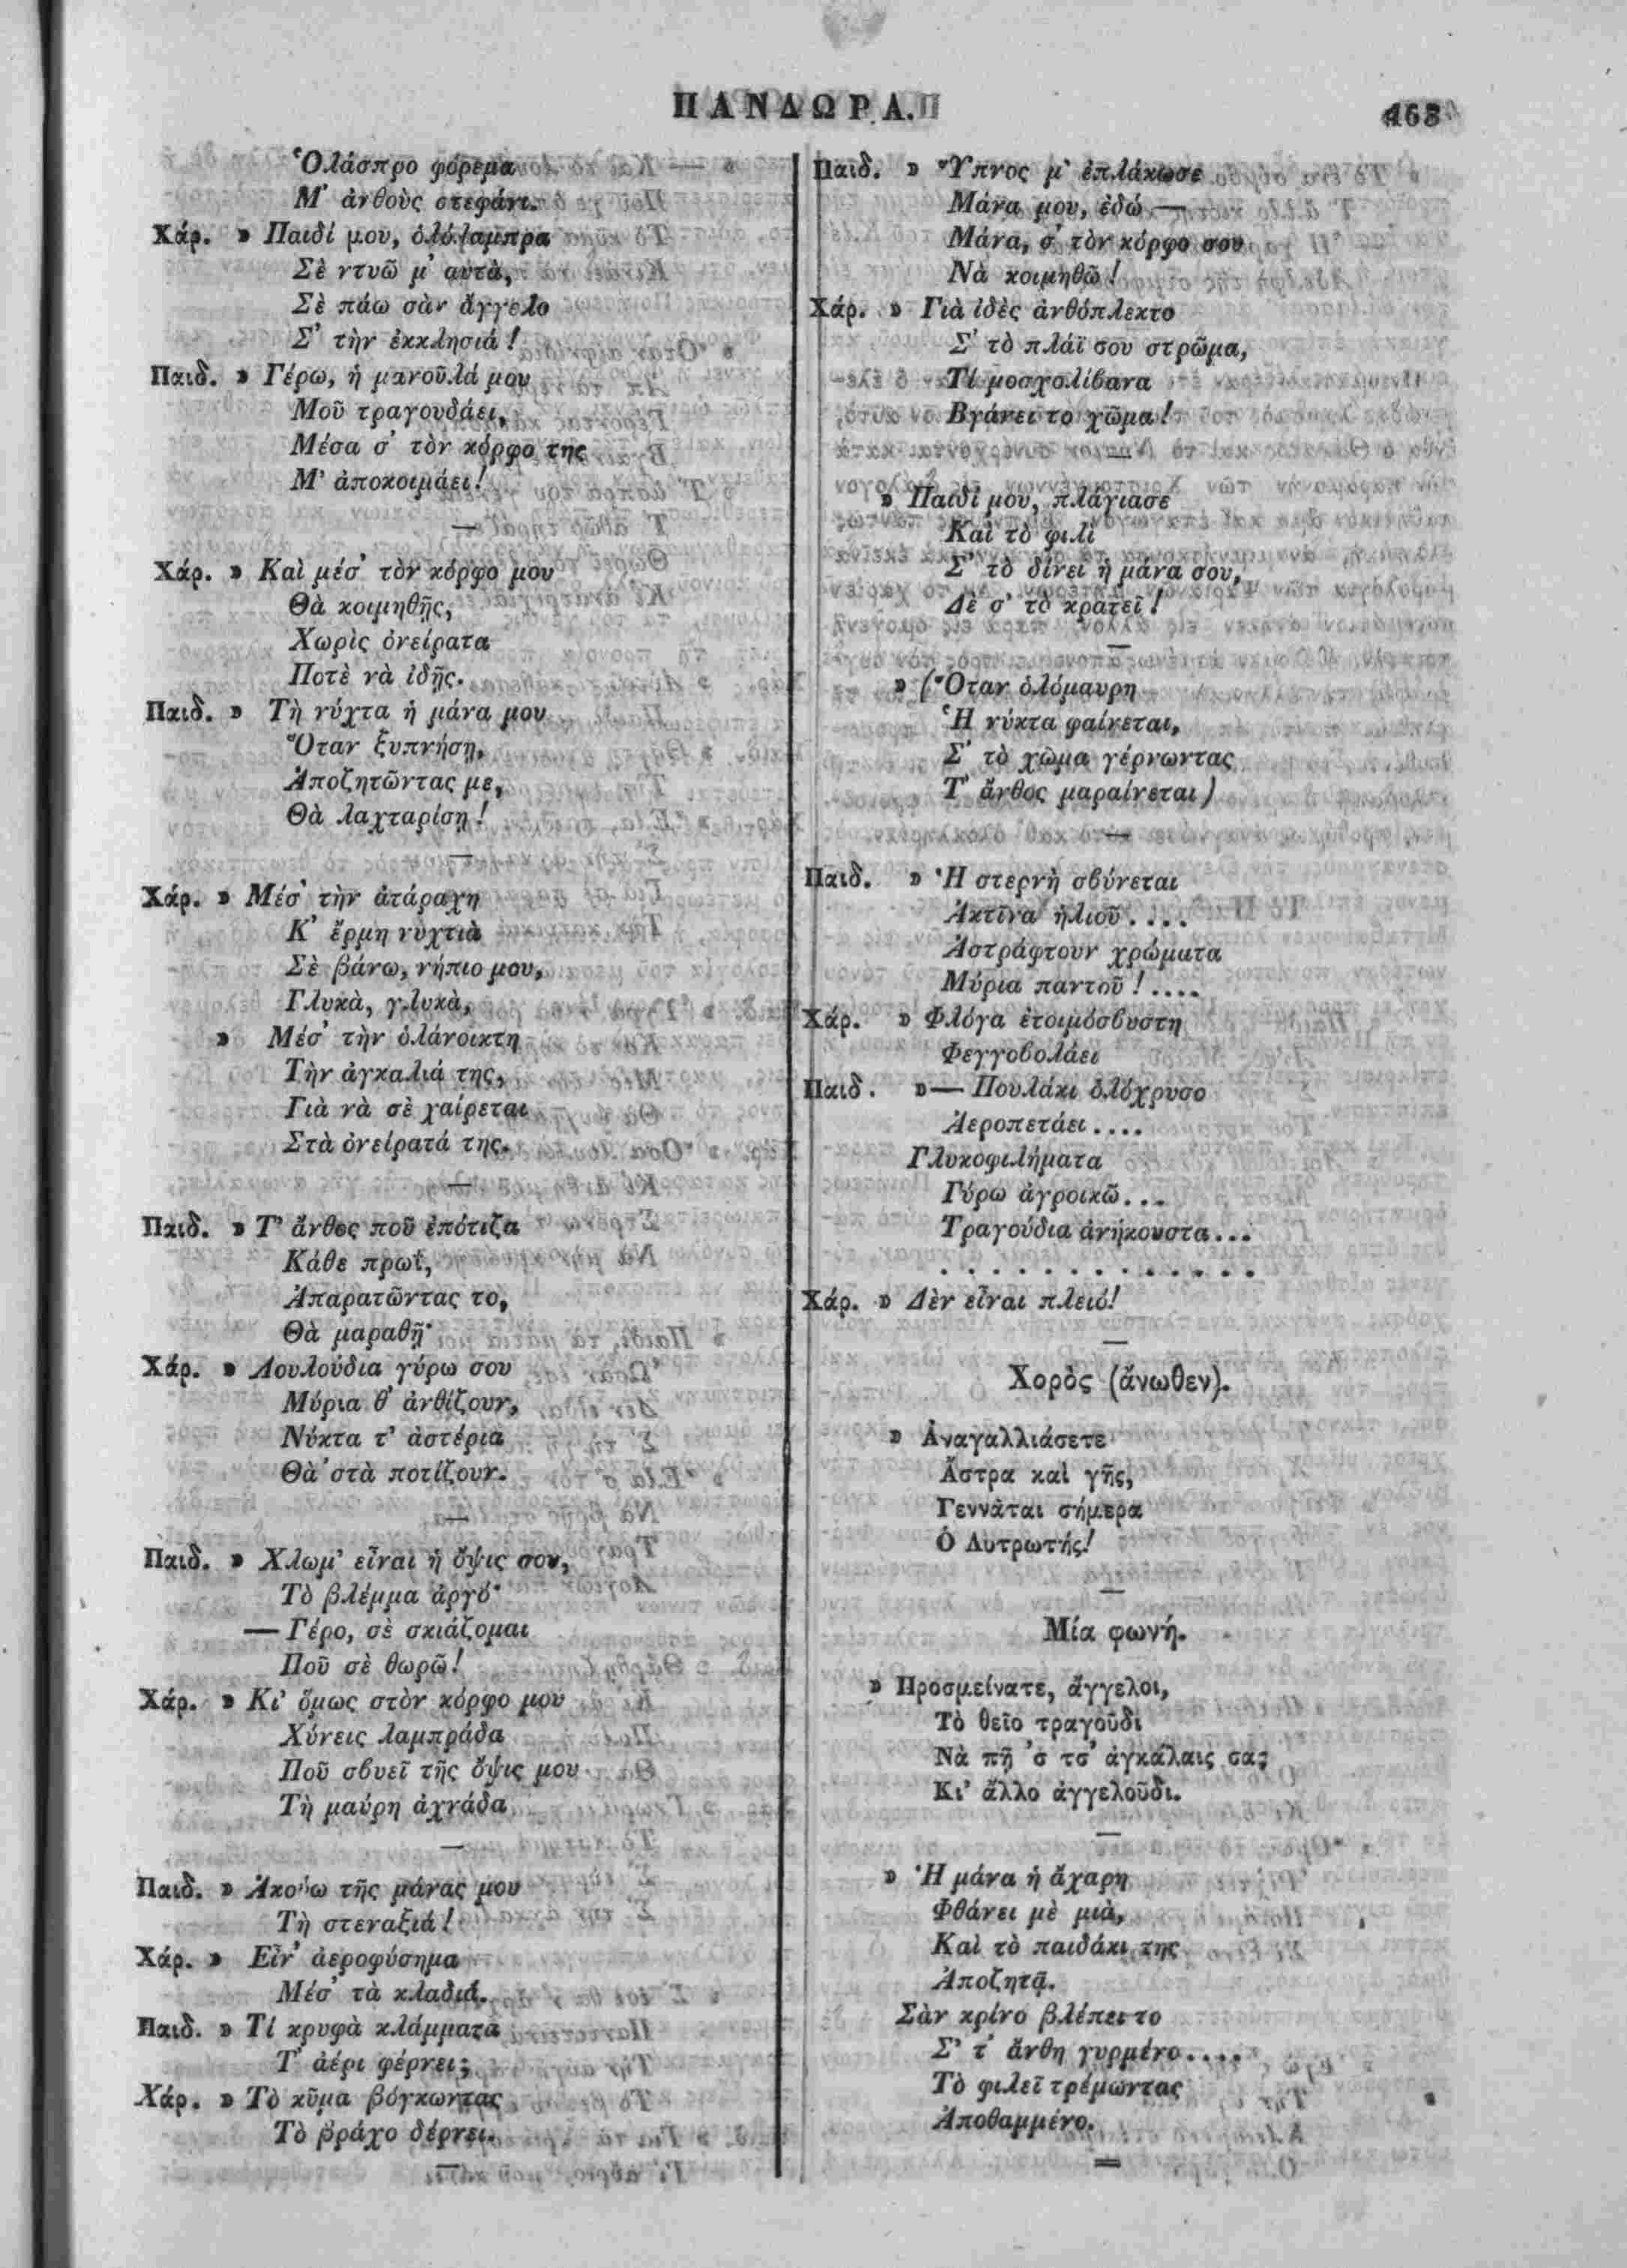 ΠΑΝΔΩΡΑ.
468
Ὁλάσπρο φόρεμα
Μ' ἀνθοὺς στεφάνι.
Χάρ. » Παιδί μου, ὁλόλαμπρα
Σὲ ντυῶ μ' αυτὰ,
Σὲ πάω σὰν ἄγγελο
Σ' τὴν ἐκκλησιά!
Παιδ. » Γέρω, ἡ μανοῦλά μου
Μοῦ τραγουδάει,
Μέσα σ' τὸν κόρφο της
Μ' ἀποκοιμάει!
—
Χάρ. » Καὶ μέσ' τὸν κόρφο μου
Θὰ κοιμηθῇς,
Χωρὶς ὀνείρατα
Ποτὲ νὰ ἰδῇς.
Παιδ. » Τὴ νύχτα ἡ μάνα μου
Ὅταν ξυπνήσῃ,
Ἀποζητῶντας με,
Θὰ λαχταρίσῃ!
—
Χάρ. » Μέσ' τὴν ἀτάραχη
Κ' ἔρμη νυχτιὰ
Σὲ βάνω, νήπιο μου,
Γλυκὰ, γλυκὰ,
» Μέσ' τὴν ὁλάνοικτη
Τὴν ἀγκαλιά της,
Γιὰ νὰ σὲ χαίρεται
Στὰ ὀνείρατά της.
—
Παιδ. » Τ' ἄνθος ποῦ ἐπότιζα
Κάθε πρωΐ,
Ἀπαρατῶντας το,
Θὰ μαραθῇ·
Χάρ. » Λουλούδια γύρω σου
Μύρια θ' ἀνθίζουν,
Νύκτα τ' ἀστέρια
Θὰ 'στὰ ποτίζουν.
—
Παιδ. » Χλωμ' εἶναι ἡ ὄψις σου,
Τὸ βλέμμα ἀργό·
— Γέρο, σὲ σκιάζομαι
Ποῦ σὲ θωρῶ!
Χάρ. » Κι' ὅμως στὸν κόρφο μου
Χύνεις λαμπράδα
Ποῦ σβυεῖ τῆς ὄψις μου
Τὴ μαύρη ἀχνάδα
—
Παιδ. » Ἀκούω τῆς μάνας μου
Τὴ στεναξιά!
Χάρ. » Εἶν' ἀεροφύσημα
Μέσ' τὰ κλαδιά.
Παιδ. » Τί κρυφὰ κλάμματα
Τ' ἀέρι φέρνει;
Χάρ. » Τὸ κῦμα βόγκωντας
Τὸ βράχο δέρνει.
—
Παιδ. » Ὕπνος μ' ἐπλάκωσε
Μάνα μου, ἐδώ —
Μάνα, σ' τὸν κόρφο σου
Νὰ κοιμηθῶ!
Χάρ. » Γιὰ ἰδὲς ἀνθόπλεκτο
Σ' τὸ πλάϊ σου στρῶμα,
Τί μοσχολίβανα
Βγάνει το χῶμα!
—
» Παιδί μου, πλάγιασε
Καὶ τὸ φιλὶ
Σ' τὸ δίνει ἡ μάνα σου,
Δὲ σ' τὸ κρατεῖ!
—
» (Ὅταν ὁλόμαυρη
Ἡ νύκτα φαίνεται,
Σ' τὸ χῶμα γέρνωντας
Τ' ἄνθος μαραίνεται)
—
Παιδ. » Ἡ στερνὴ σβύνεται
Ἀκτῖνα ἡλιοῦ....
Ἀστράφτουν χρώματα
Μύρια παντοῦ!....
Χάρ. » Φλόγα ἑτοιμόσβυστη
Φεγγοβολάει
Παιδ. » — Πουλάκι ὁλόχρυσο
Ἀεροπετάει....
Γλυκοφιλήματα
Γύρω ἀγροικῶ...
Τραγούδια ἀνήκουστα...
. . . . . . . . . . . . .
Χάρ. » Δὲν εἶναι πλειό!
—
Χορὸς (ἄνωθεν).
» Ἀναγαλλιάσετε
Ἄστρα καὶ γῆς,
Γεννᾶται σήμερα
Ὁ Λυτρωτής!
—
Μία φωνή.
» Προσμείνατε, ἄγγελοι,
Τὸ θεῖο τραγοῦδι
Νὰ πῇ 'σ τσ' ἀγκάλαις σας
Κι' ἄλλο ἀγγελοῦδι.
—
» Ἡ μάνα ἡ ἄχαρη
Φθάνει μὲ μιὰ,
Καὶ τὸ παιδάκι της
Ἀποζητᾷ.
Σὰν κρίνο βλέπει το
Σ' τ' ἄνθη γυρμένο....
Τὸ φιλεῖ τρέμωντας
Ἀποθαμμένο.